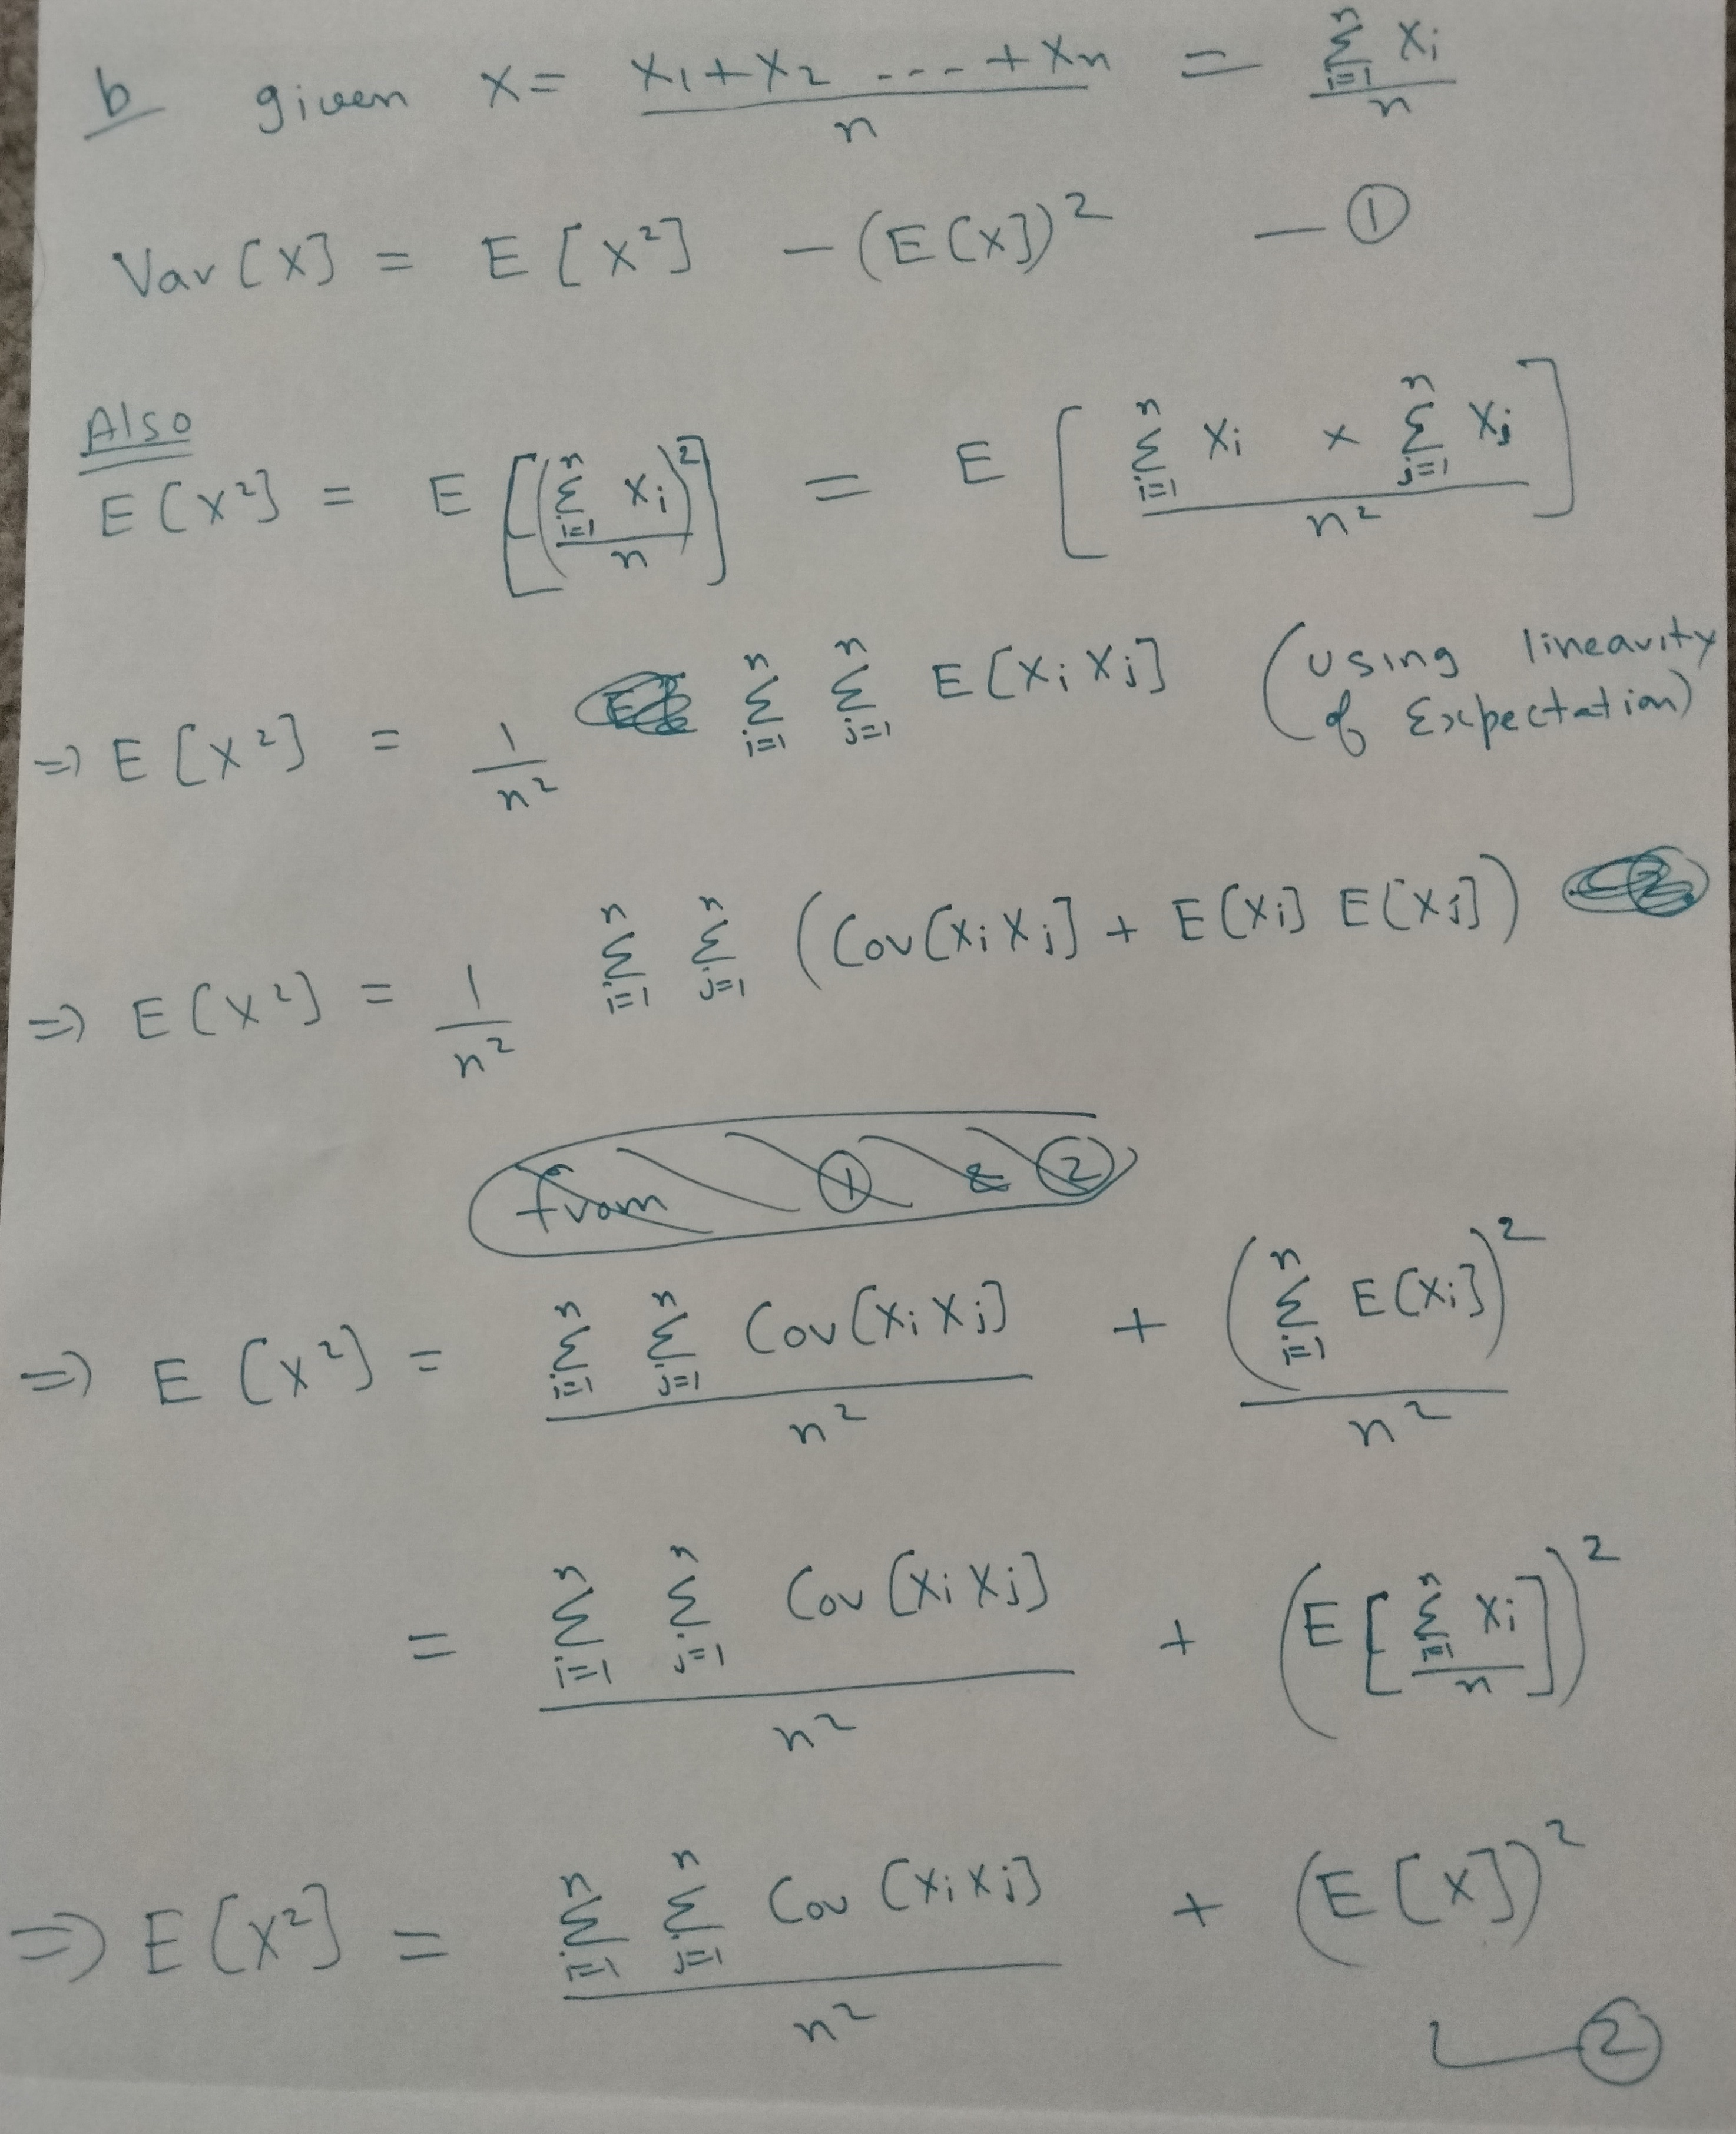 b given X = (X₁+X₂ ---- + Xₙ)/n = (Σᵢ₌₁ⁿ Xᵢ)/n
Var[X] = E[X²] − (E[X])² — ①
Also
E[X²] = E[((Σᵢ₌₁ⁿ Xᵢ)/n)²] = E[(Σᵢ₌₁ⁿ Xᵢ × Σⱼ₌₁ⁿ Xⱼ)/n²]
⇒ E[X²] = 1/n² Σᵢ₌₁ⁿ Σⱼ₌₁ⁿ E[XᵢXⱼ] (using linearity
of Expectation)
⇒ E[X²] = 1/n² Σᵢ₌₁ⁿ Σⱼ₌₁ⁿ (Cov[XᵢXⱼ] + E[Xᵢ] E[Xⱼ])
from ① & ②
⇒ E[X²] = (Σᵢ₌₁ⁿ Σⱼ₌₁ⁿ Cov[XᵢXⱼ])/n² + (Σᵢ₌₁ⁿ E[Xᵢ])²/n²
= (Σᵢ₌₁ⁿ Σⱼ₌₁ⁿ Cov[XᵢXⱼ])/n² + (E[(Σᵢ₌₁ⁿ Xᵢ)/n])²
⇒ E[X²] = (Σᵢ₌₁ⁿ Σⱼ₌₁ⁿ Cov[XᵢXⱼ])/n² + (E[X])²
— ②